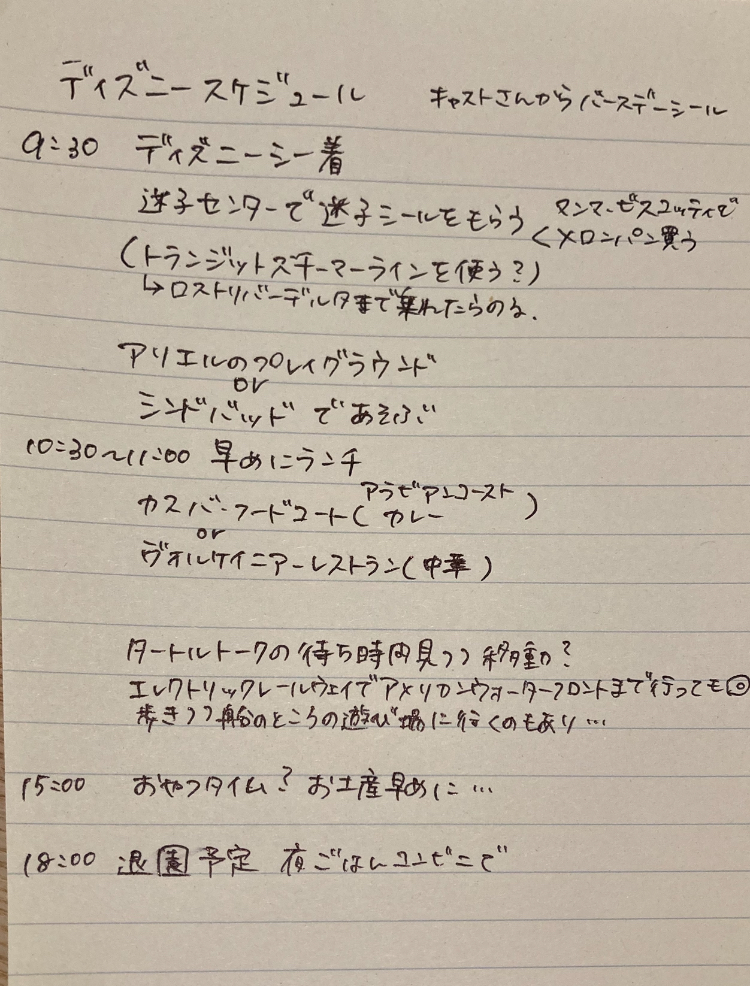 ディズニースケジュール
キャストさんからバースデーシール
9:30 ディズニーシー着
迷子センターで迷子シールをもらう
マンマ・ビスコッティで
くメロンパン買う
(トランジットスチーマーラインを使う?)
↳ロストリバーデルタまで乗れたらのる.
アリエルのプレイグラウンド
or
シンドバッドであそぶ
10:30~11:00 早めにランチ
アラビアンコースト
カスバ・フードコート(カレー)
or
ヴォルケイニアーレストラン(中華)
タートルトークの待ち時間見つつ移動?
エレクトリックレールウェイでアメリカンウォーターフロントまで行っても◎
歩きつつ船のところの遊び場に行くのもあり…
15:00 おやつタイム? お土産早めに…
18:00 退園予定 夜ごはんコンビニで